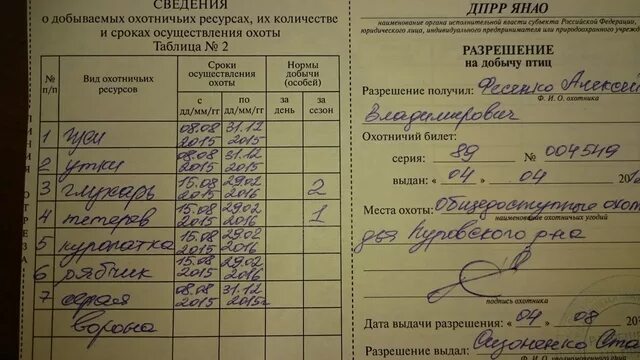 СВЕДЕНИЯ
о добываемых охотничьих ресурсах, их количестве
и сроках осуществления охоты
Таблица № 2
№ п/п
Вид охотничьих ресурсов
Сроки осуществления охоты
Нормы добычи (особей)
с дд/мм/гг
по дд/мм/гг
за день
за сезон
1 гуси 08.08 2015 31.12 2015
2 утки 08.08 2015 31.12 2015
3 глухарь 15.08 2015 29.02 2016 2
4 тетерев 15.08 2015 29.02 2016 1
5 куропатка 15.08 2015 29.02 2016
6 рябчик 15.08 2015 29.02 2016
7 серая 08.08 2015 31.12 2015г
ворона
ЛИНИЯ ОТРЕЗА
ДПРР ЯНАО
наименование органа исполнительной власти субъекта Российской Федерации,
юридического лица, индивидуального предпринимателя или природоохранного учрежд
РАЗРЕШЕНИЕ
на добычу птиц
Разрешение получил: Фесенко Алексей
Владимирович
Ф. И. О. охотника
Охотничий билет:
серия: 89 № 004549
выдан: « 04 » 04 20
Места охоты: Общедоступные охот
наименование охотничьих угодий
Пуровского р-на
подпись охотника
Дата выдачи разрешения: « 04 » 08 20
Разрешение выдал:
Ф. И. О. уполномоченного